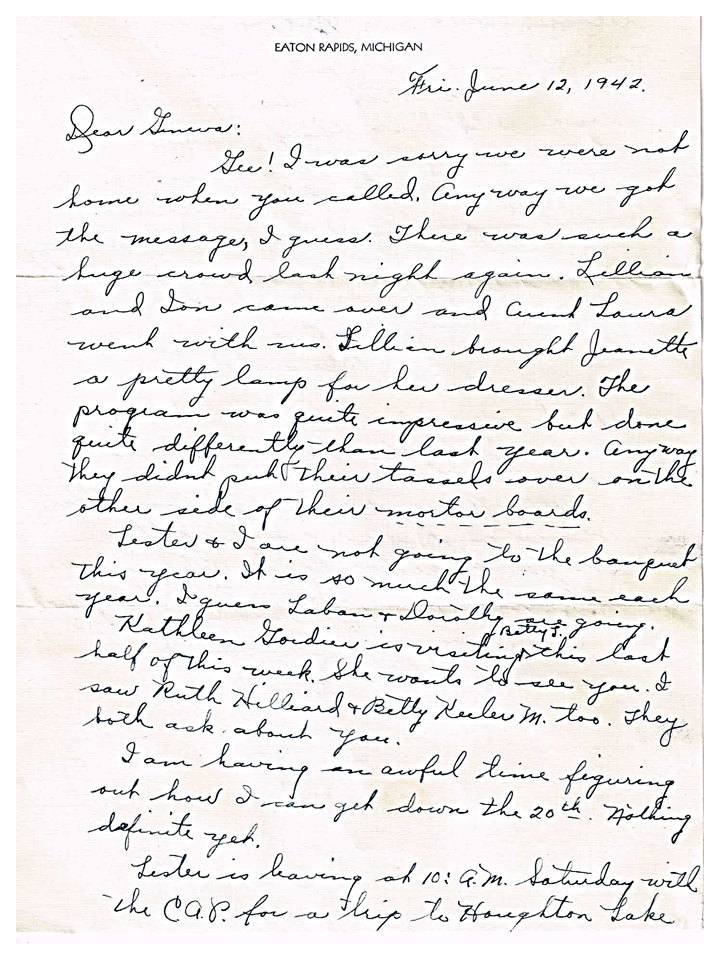 EATON RAPIDS, MICHIGAN
Fri. June 12, 1942.
Dear Geneva:
Gee! I was sorry we were not
home when you called. Anyway we got
the message, I guess. There was such a
huge crowd last night again. Lillian
and Don came over and Aunt Laura
went with us. Lillian brought Jeanette
a pretty lamp for her dresser. The
program was quite impressive but done
quite differently than last year. Anyway
they didnt put their tassels over on the
other side of their mortor boards.
Lester & I are not going to the banquet
this year. It is so much the same each
year. I guess Laban & Dorothy are going.
Kathleen Gordier is visiting Betty J. this last
half of this week. She wants to see you. I
saw Ruth Hilliard & Betty Keeler M. too. They
both ask about you.
I am having an awful time figuring
out how I can get down the 20th. Nothing
definite yet.
Lester is leaving at 10: A.M. Saturday with
the C.A.P. for a trip to Houghton Lake